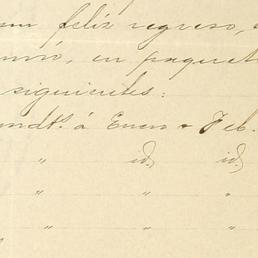 feliz regreso,
en paquet
siguientes:
á Enero & Feb.
" id, id,
" " "
" " "